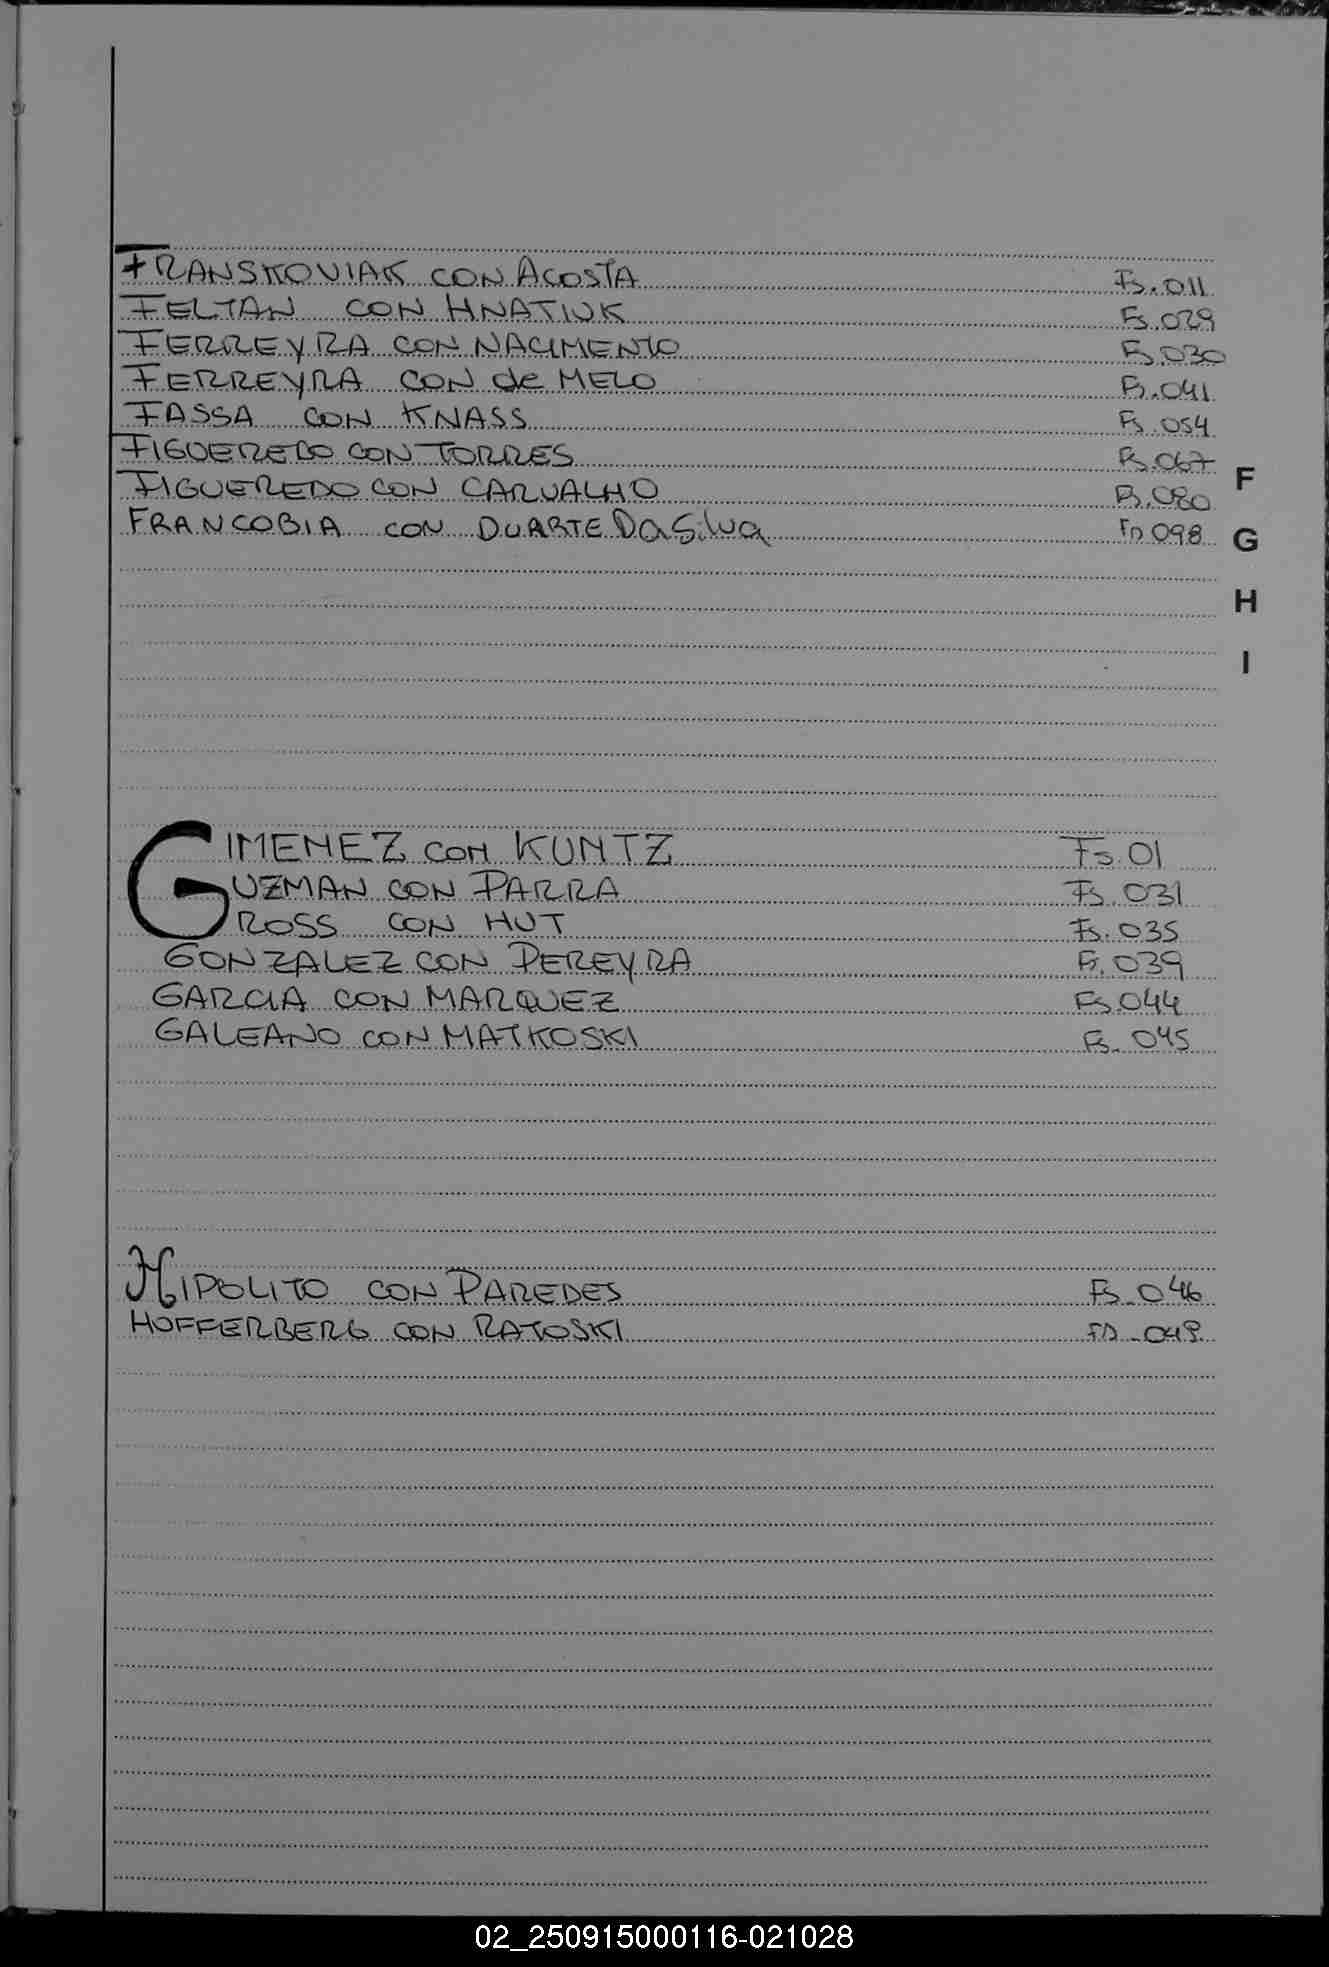 FRANSKOVIAK CON ACOSTA Fs. 011
FELTAN CON HNATIUK Fs. 029
FERREYRA CON NACIMENTO Fs. 030
FERREYRA CON de MELO Fs. 041
FASSA CON KNASS Fs. 054
FIGUEREDO CON TORRES Fs. 067
FIGUEREDO CON CARVALHO Fs. 080
FRANCOBIA CON DUARTE Da Silva Fs 098
F
G
H
I
GIMENEZ CON KUNTZ Fs. 01
GUZMAN CON PARRA Fs. 031
GROSS CON HUT Fs. 035
GONZALEZ CON PEREYRA Fs. 039
GARCIA CON MARQUEZ Fs. 044
GALEANO CON MATKOSKI Fs. 045
HIPOLITO CON PAREDES Fs. 046
HOFFERBERG CON RATOSKI 049
02_250915000116-021028